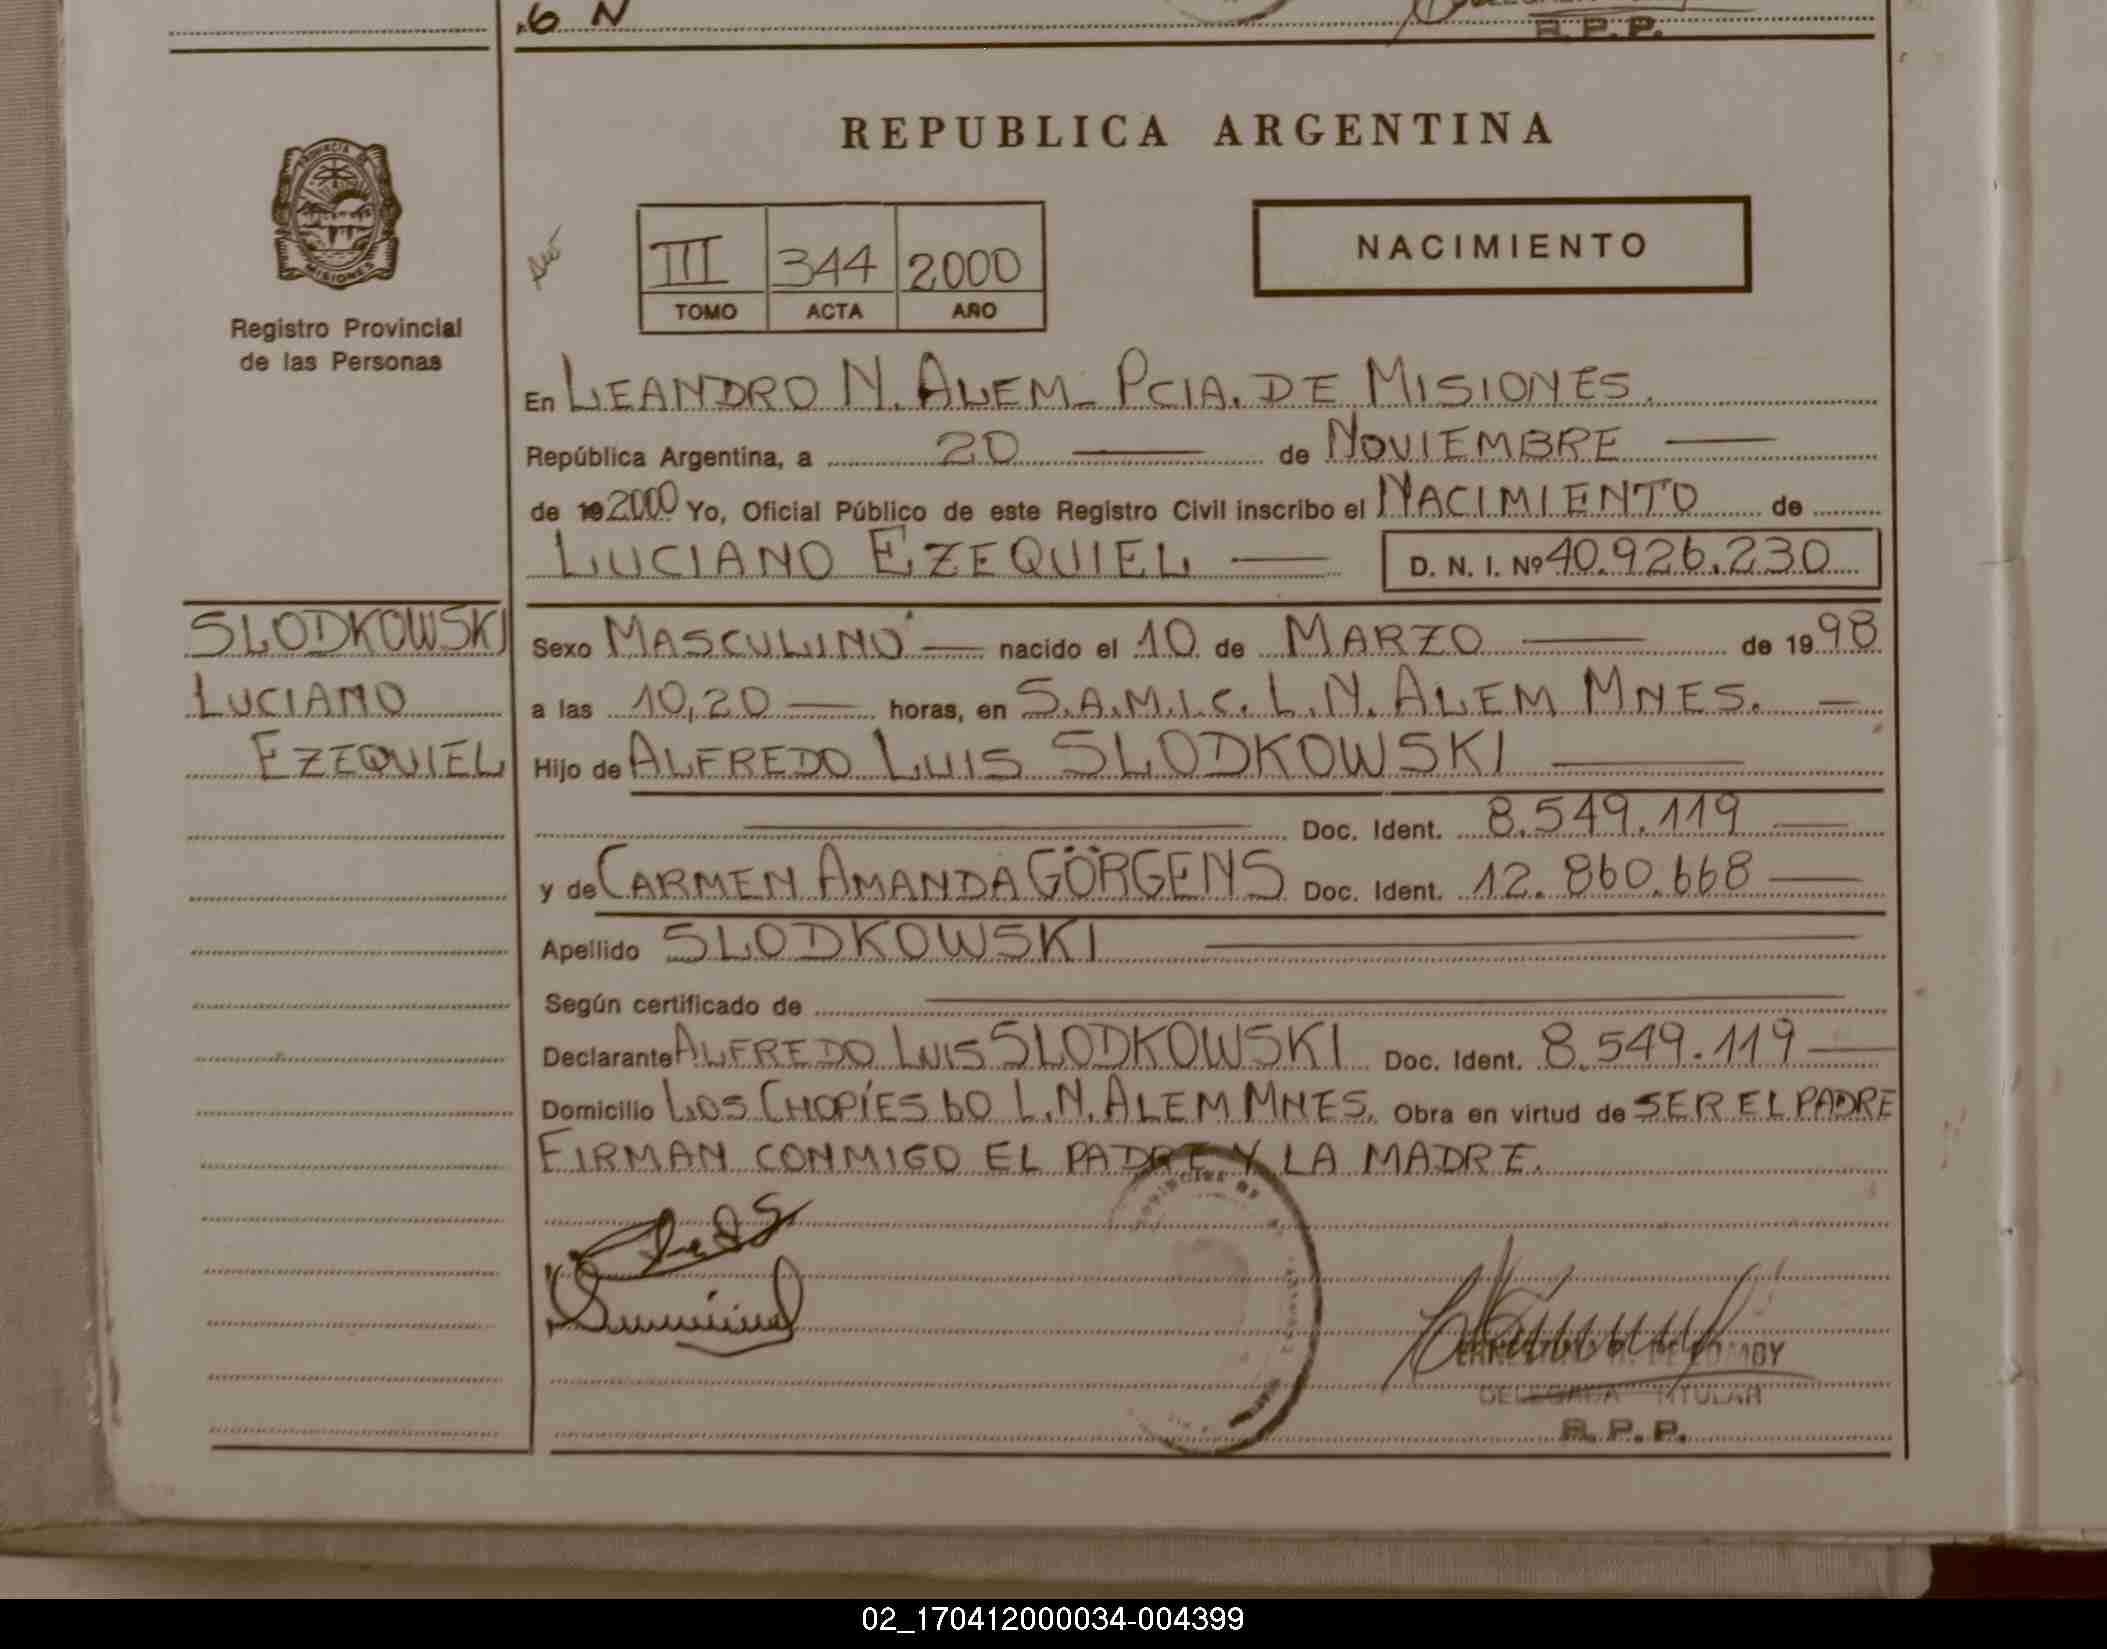 .6 N
R. P. P.
REPUBLICA ARGENTINA
PROVINCIA DE
MISIONES
Registro Provincial
de las Personas
III 344 2000
TOMO ACTA AÑO
NACIMIENTO
En LEANDRO N. ALEM - PCIA. DE MISIONES.
República Argentina, a 20 de NOVIEMBRE
de 19 2000 Yo, Oficial Público de este Registro Civil inscribo el NACIMIENTO de
LUCIANO EZEQUIEL D. N. I. Nº 40.926.230
SLODKOWSKI
LUCIANO
EZEQUIEL
Sexo MASCULINO nacido el 10 de MARZO de 1998
a las 10,20 horas, en S.A.M.I.C. L.N. ALEM MNES.
Hijo de ALFREDO LUIS SLODKOWSKI
Doc. Ident. 8.549.119
y de CARMEN AMANDA GÖRGENS Doc. Ident. 12.860.668
Apellido SLODKOWSKI
Según certificado de
Declarante ALFREDO LUIS SLODKOWSKI Doc. Ident. 8.549.119
Domicilio LOS CHOPÍES 60 L.N. ALEM MNES. Obra en virtud de SER EL PADRE
FIRMAN CONMIGO EL PADRE Y LA MADRE.
DELEGADA TITULAR
R. P. P.
02_170412000034-004399